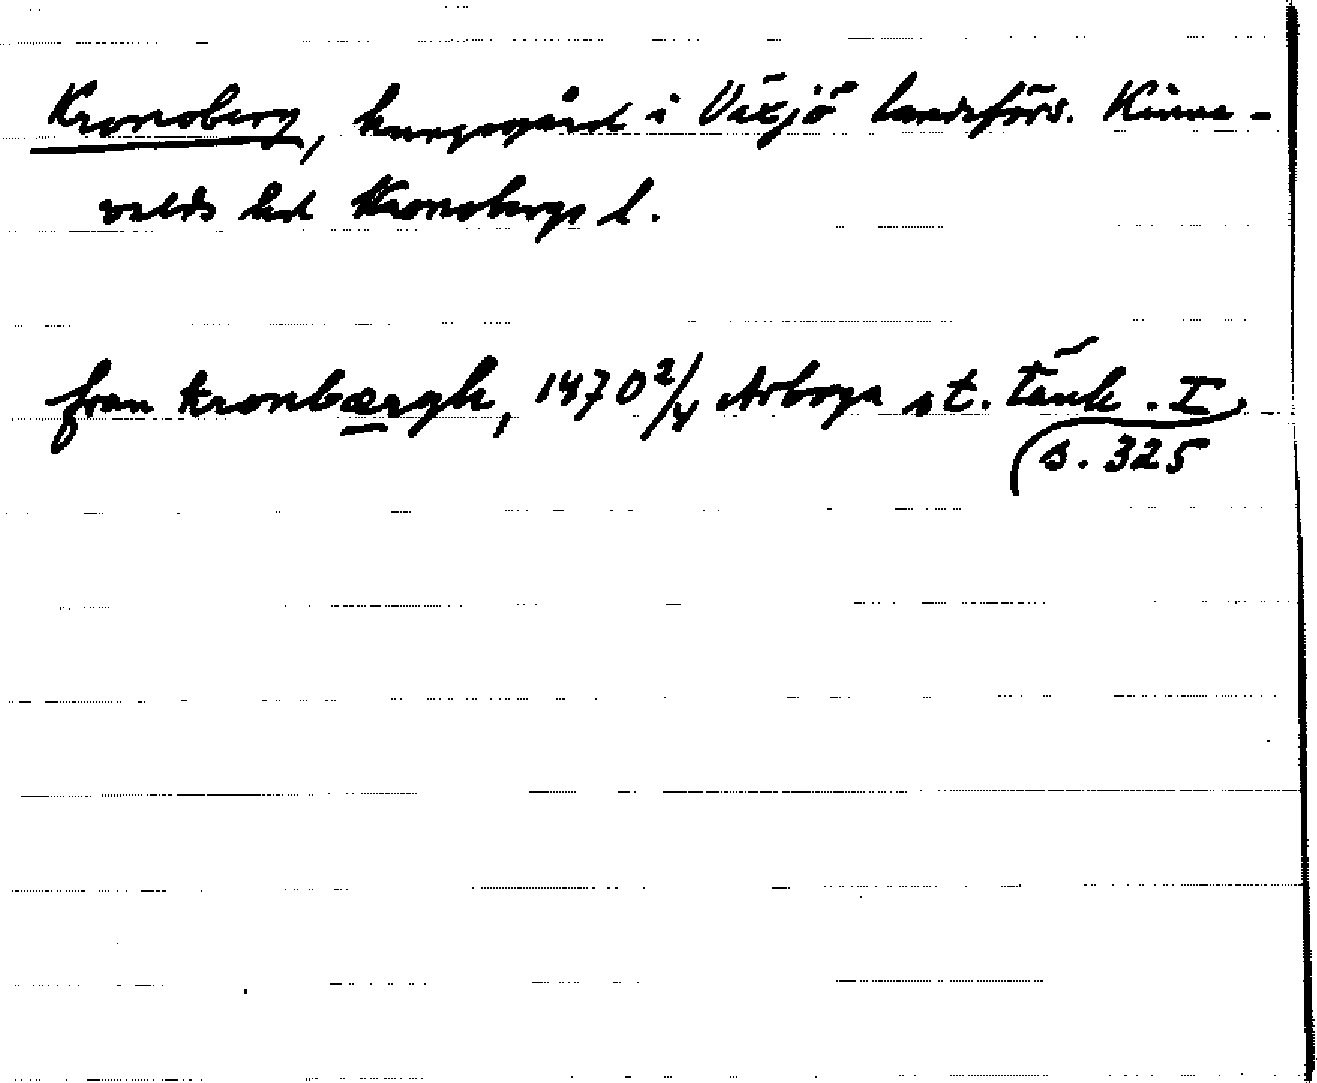 Kronoberg, kungsgård i Växjö landsförs. Kinne-
valds hd Kronobergs l.
fran kronbærgh, 1470 2/4 Arboga st. tänk. I
s. 325